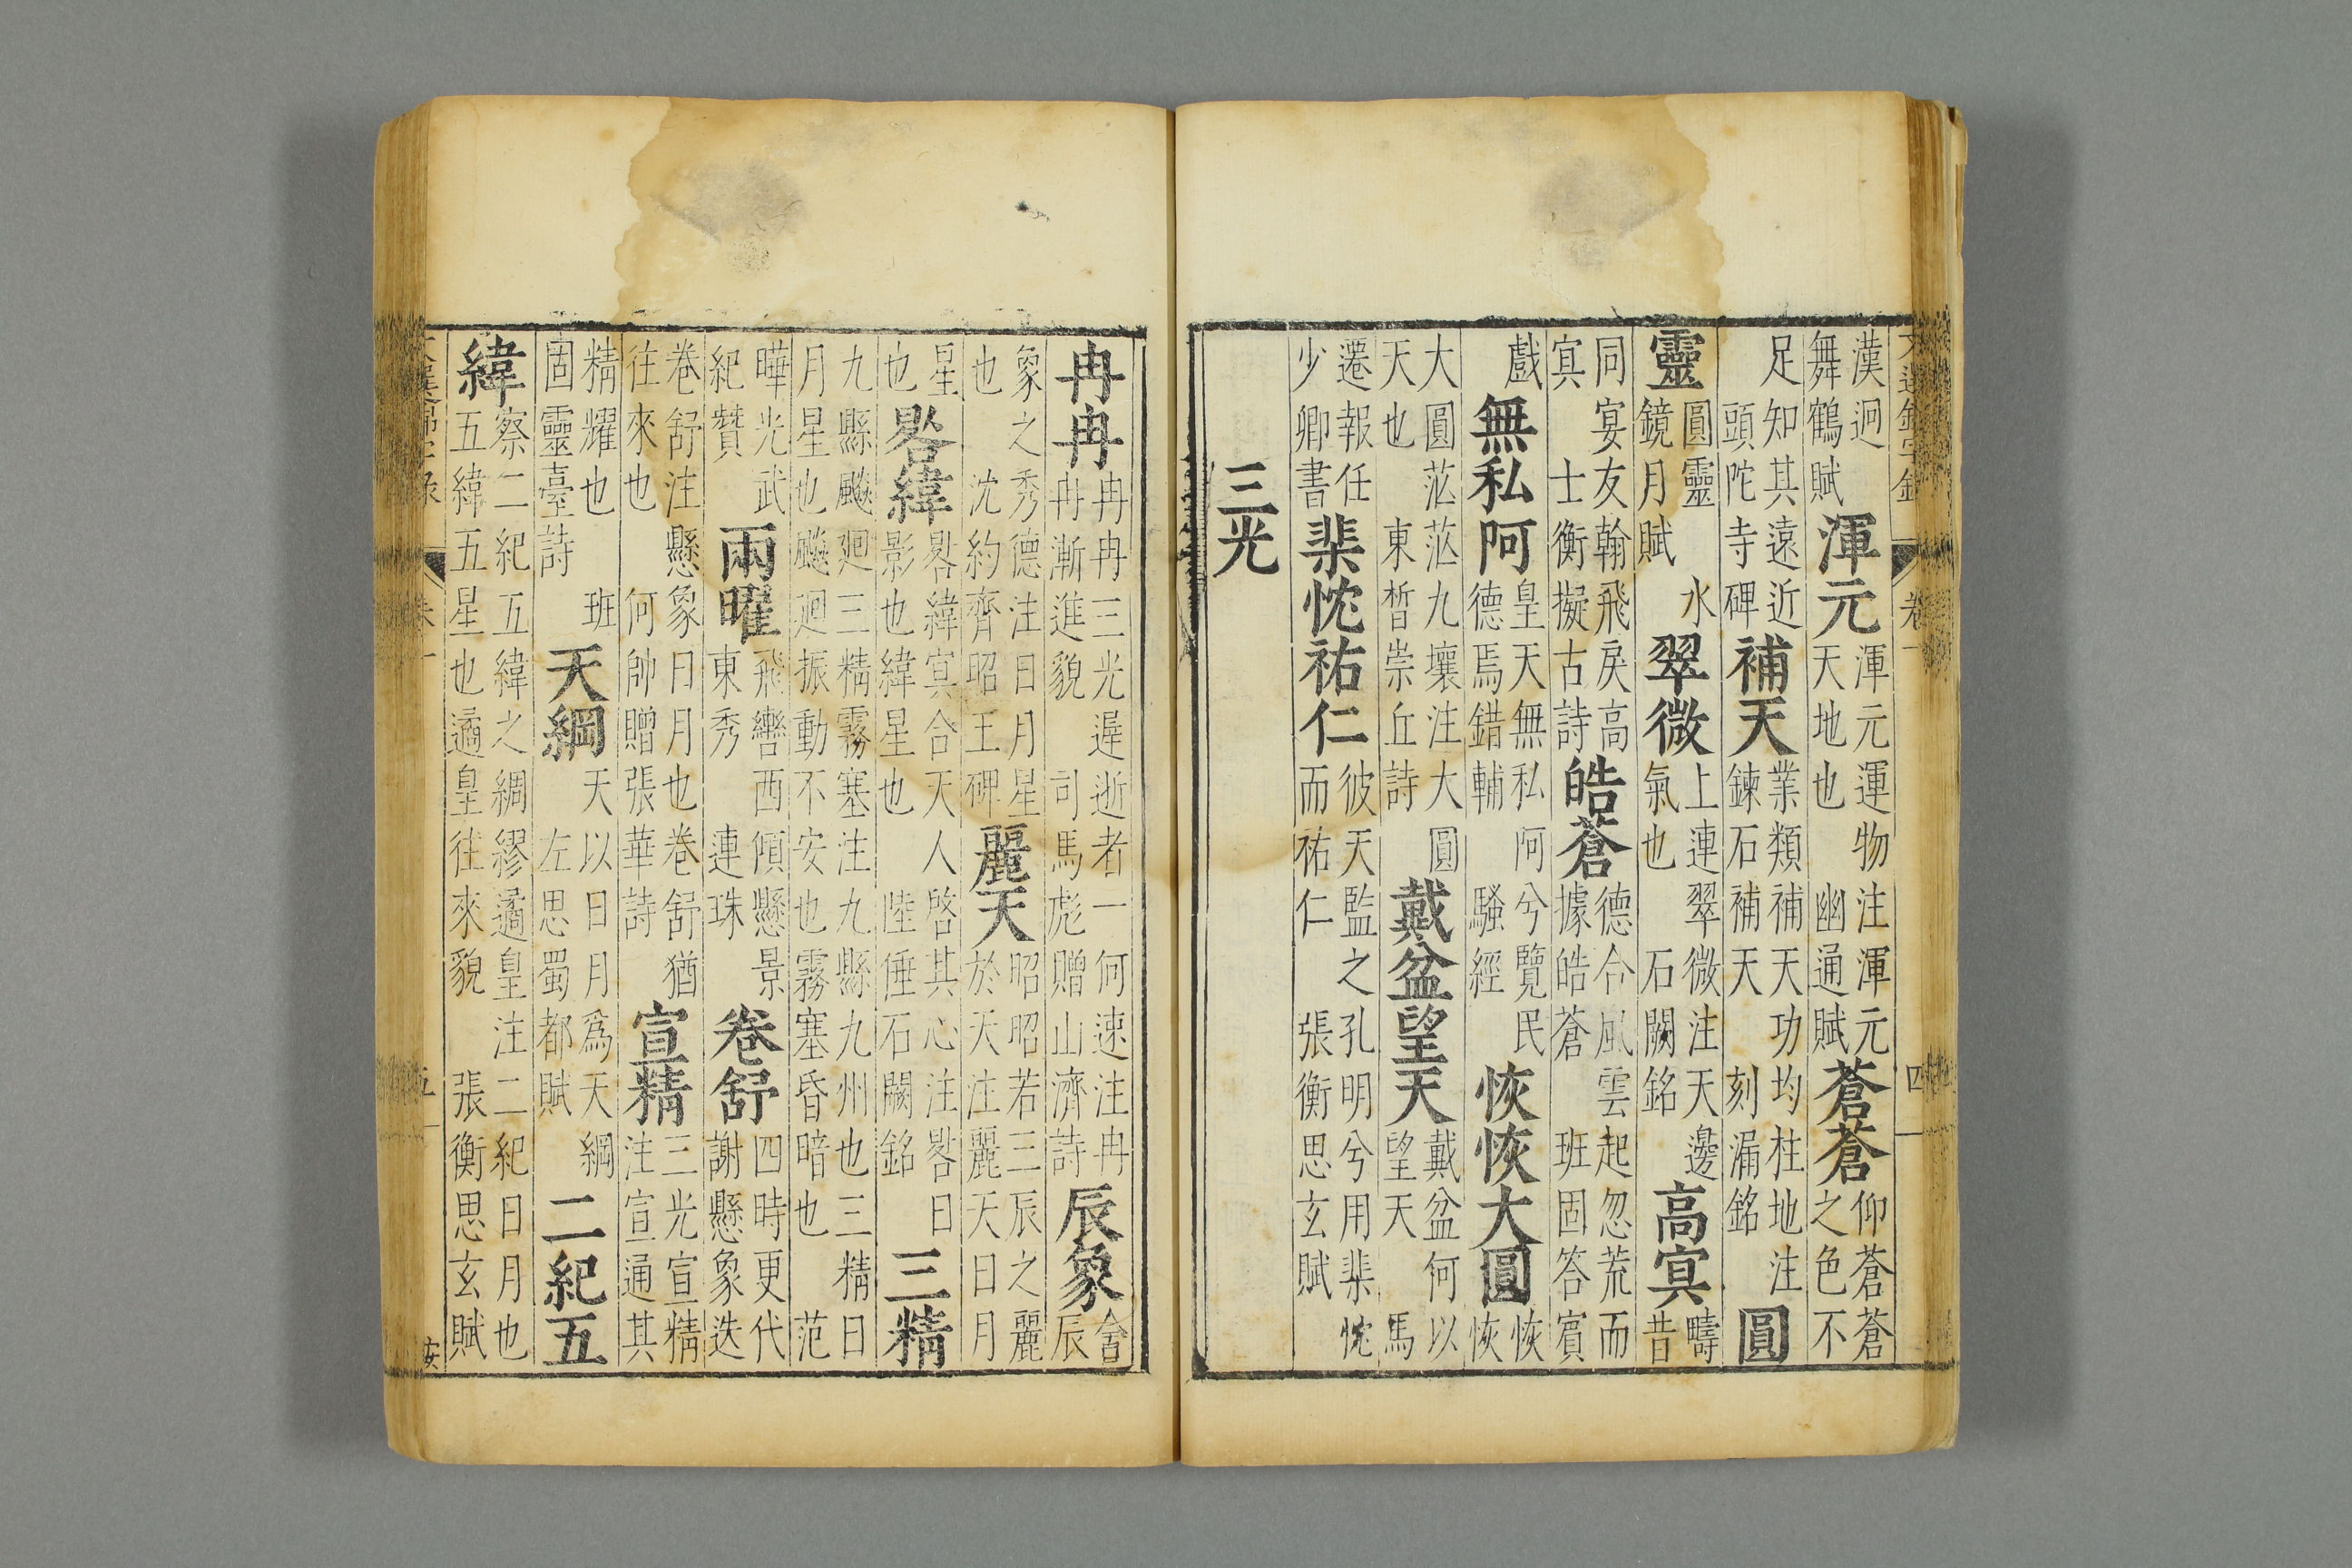 文選錦字錄 卷一 四
漢迥舞鶴賦 渾元 渾元運物注渾元天地也 幽通賦 蒼蒼 仰蒼蒼之色不
足知其遠近 頭陀寺碑 補天 業類補天功均柱地注鍊石補天 刻漏銘 圓
靈 圓靈水鏡月賦 翠微 上連翠微注天邊氣也 石闕銘 高冥 疇昔
同宴友翰飛戾高冥 士衡擬古詩 皓蒼 德合風雲起忽荒而據皓蒼 班固答賓
戲 無私阿 皇天無私阿兮覽民德焉錯輔 騷經 恢恢大圓 恢恢
大圓茫茫九壤注大圓天也 東晳崇丘詩 戴盆望天 戴盆何以望天 馬
遷報任少卿書 棐忱祐仁 彼天監之孔明兮用棐忱而祐仁 張衡思玄賦
三光
冉冉 冉冉三光遲逝者一何速注冉冉漸進貌 司馬彪贈山濤詩 辰象 會辰
象之秀德注日月星也 沈約齊昭王碑 麗天 昭昭若三辰之麗於天注麗天日月
星也 晷緯 晷緯冥合天人啓其心注晷日影也緯星也 陸倕石闕銘 三精
九縣飈廻三精霧塞注九縣九州也三精日月星也飈廻振動不安也霧塞昏暗也 范
曄光武紀贊 兩曜 飛轡西傾懸景東秀 連珠 卷舒 四時更代謝懸象迭
卷舒注懸象日月也卷舒猶往來也 何帥贈張華詩 宣精 三光宣精注宣通其
精耀也 班固靈臺詩 天綱 天以日月爲天綱 左思蜀都賦 二紀五
緯 察二紀五緯之綢繆遹皇注二紀日月也五緯五星也遹皇往來貌 張衡思玄賦